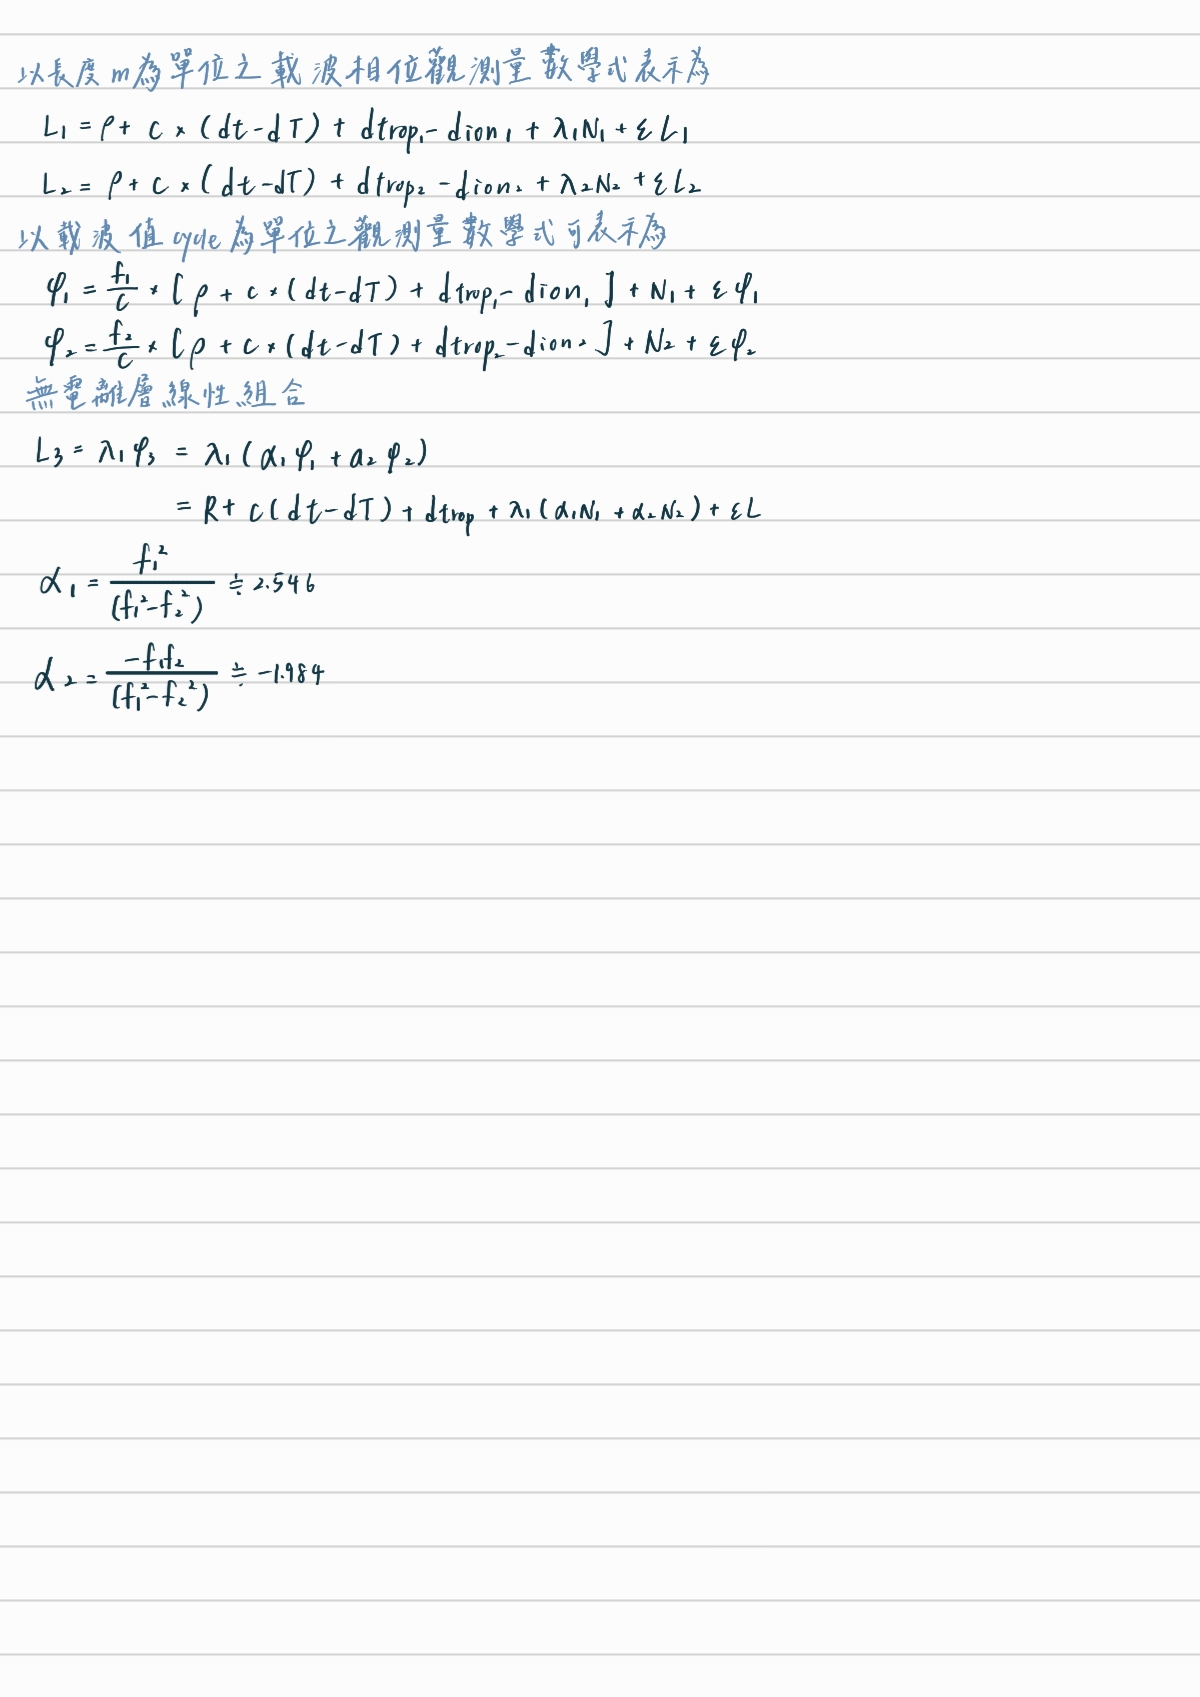 以長度 m為單位之載波相位觀測量數學式表示為
L₁ = ρ + c × (dt - dT) + dtrop₁ - dion₁ + λ₁N₁ + εL₁
L₂ = ρ + c × (dt - dT) + dtrop₂ - dion₂ + λ₂N₂ + εL₂
以載波值cycle為單位之觀測量數學式可表示為
φ₁ = f₁/c × [ρ + c × (dt - dT) + dtrop₁ - dion₁] + N₁ + εφ₁
φ₂ = f₂/c × [ρ + c × (dt - dT) + dtrop₂ - dion₂] + N₂ + εφ₂
無電離層線性組合
L₃ = λ₁φ₃ = λ₁(α₁φ₁ + a₂φ₂)
= R + c(dt - dT) + dtrop + λ₁(α₁N₁ + α₂N₂) + εL
α₁ = f₁²/(f₁² - f₂²) ≑ 2.546
α₂ = -f₁f₂/(f₁² - f₂²) ≑ -1.984